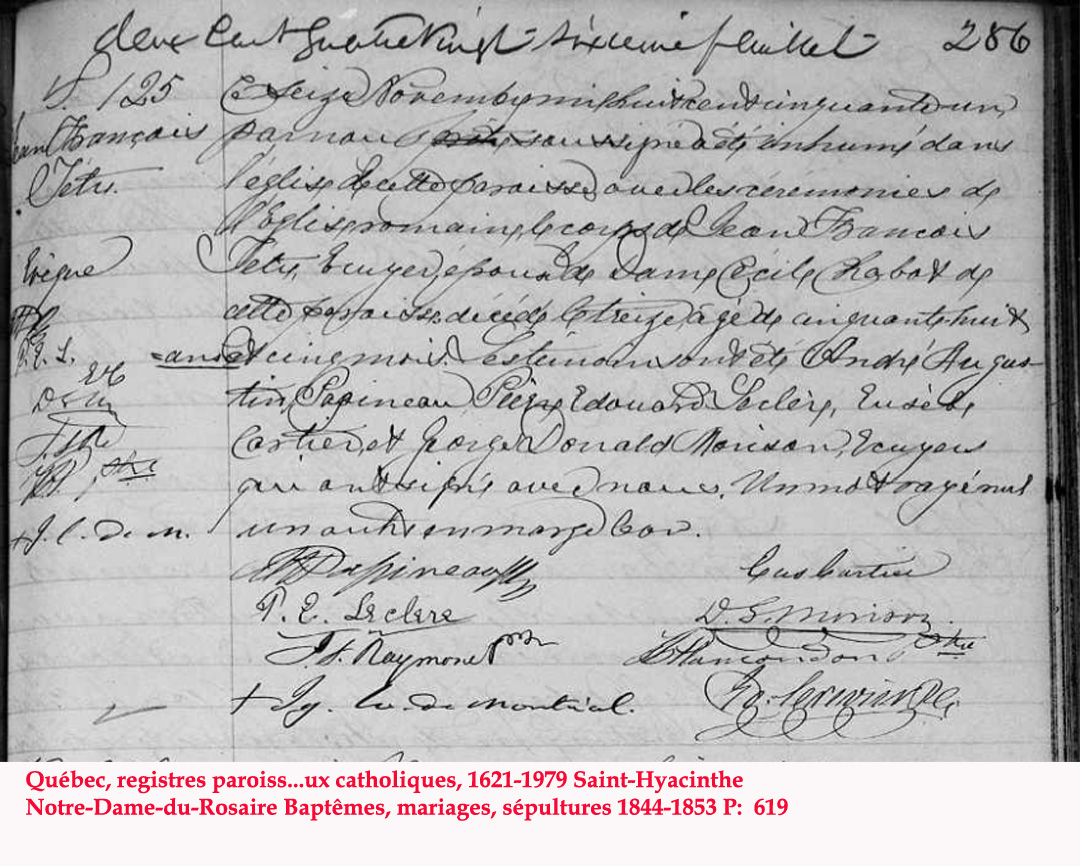 deux Cent Quatre Vingt-Sixieme feuillet 286
S. 125
Jean François
Têtu.
Evêque
Ce seize Novembre mil huit cent cinquante un,
par nous prêtre soussigné a été inhumé dans
l'église de cette paroisse, avec les cérémonies de
l'Eglise romaine, le corps de Jean François
Tetu, Ecuyer, époux de Dame Cécile Chabot de
cette paroisse, décédé le treize, âgé de cinquante-huit
ans et cinq mois. Les témoins ont été André Augus-
tin Papineau, Pierre Edouard Leclère, Eusèbe
Cartier, et George Donald Morison, Ecuyers
qui ont signé avec nous. Un mot rayé nul
un autre en marge bon.
P. E. L.
+ J. C. de M.
AA Papineau
Eus Cartier
P. E. Leclere
D. G. Morison
J. S. Raymond Ptre
+ Ig. Ev. de Montréal.
Québec, registres paroiss...ux catholiques, 1621-1979 Saint-Hyacinthe
Notre-Dame-du-Rosaire Baptêmes, mariages, sépultures 1844-1853 P: 619